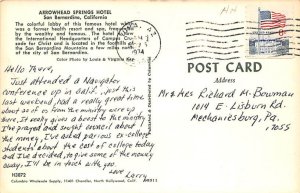 AH
ARROWHEAD SPRINGS HOTEL
San Bernardino, California
The colorful lobby of this famous hotel which
was a former health resort and spa, frequented
by the wealthy and famous. The hotel is now
the International Headquarters of Campus Cru-
sade for Christ and is located in the foothills of
the San Bernardino Mountains a few miles north
of the city of San Bernardino.
Color Photo by Louis & Virginia Kay
Hello There,
Just attended a Navigator
conference up in Calif. just this
last weekend, had a really great time
about 25 of us from the ministry were up
there. It really gives a boost to the ministry.
I've prayed and sought council about
the money, I've asked various ex-college
students about the cost of college today
and I've decided to give some of the money
away. I'll be in touch with you.
Love
Larry
H3872
Columbia Wholesale Supply, 11401 Chandler, North Hollywood, Calif.
POST CARD
Address
Mr & Mrs Richard M. Bowman
1014 E. Lisburn Rd.
Mechanicsburg, Pa.
17055